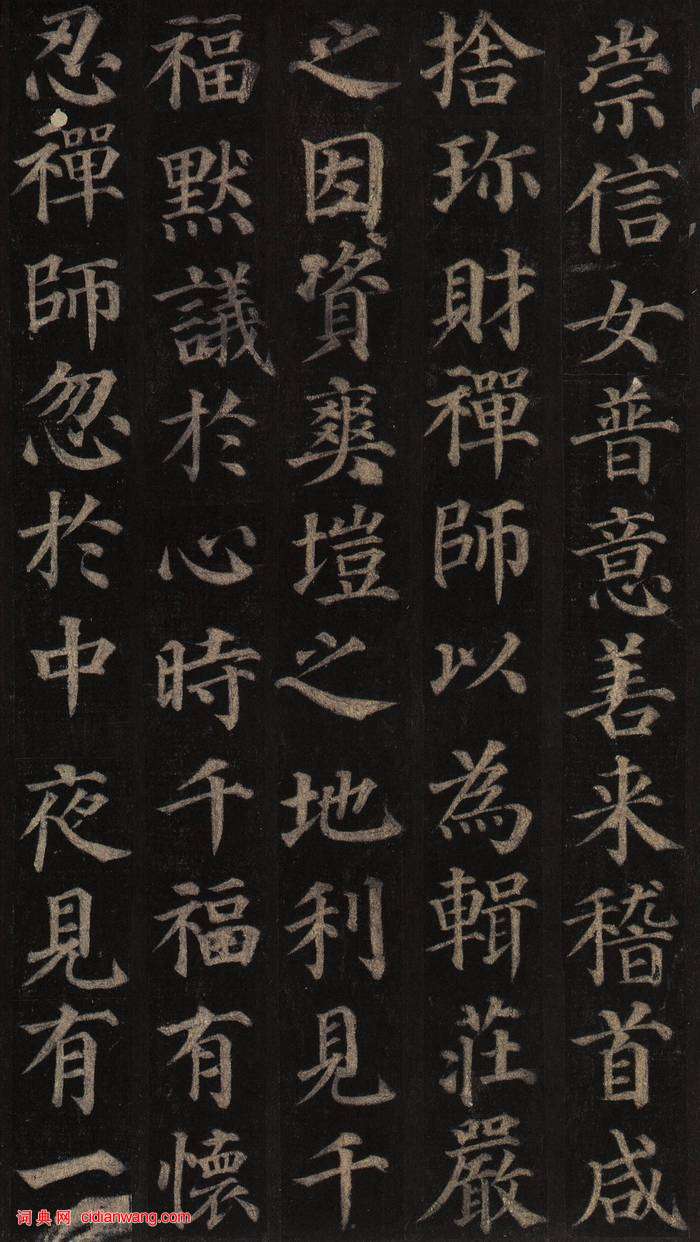 崇信女普意善来稽首咸
捨珎財禪師以為輯莊嚴
之因資爽塏之地利見千
福默議於心時千福有懷
忍禪師忽於中夜見有一
词典网 cidianwang.com